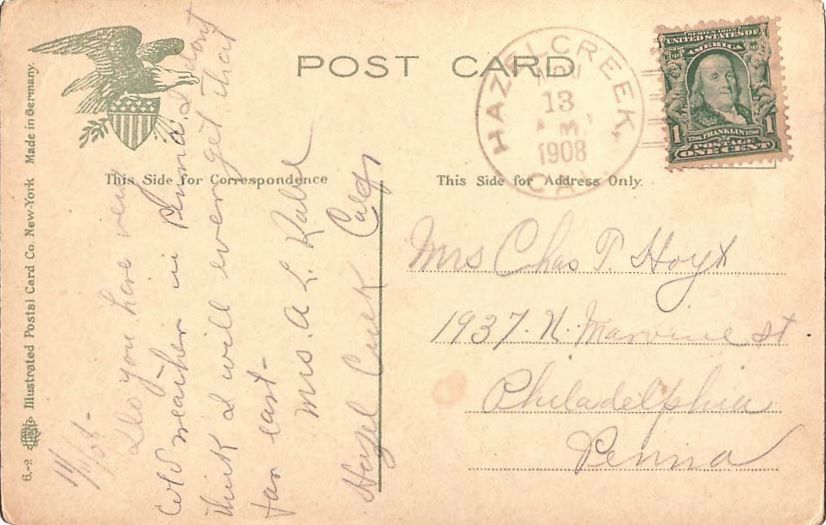 POST CARD
This Side for Correspondence
This Side for Address Only.
HAZELCREEK, CAL.
13
A M
1908
SERIES 1902
UNITED STATES OF
AMERICA
1 FRANKLIN 1
POSTAGE
ONE CENT
Illustrated Postal Card Co. New-York Made in Germany.
6.-2
Do you have very
cold weather in Penna. I don't
think I will ever get that
far east-
Mrs. A L.
Hazel Creek
Mrs Chas T. Hoyt
1937. N. Marvine st
Philadelphia
Penna